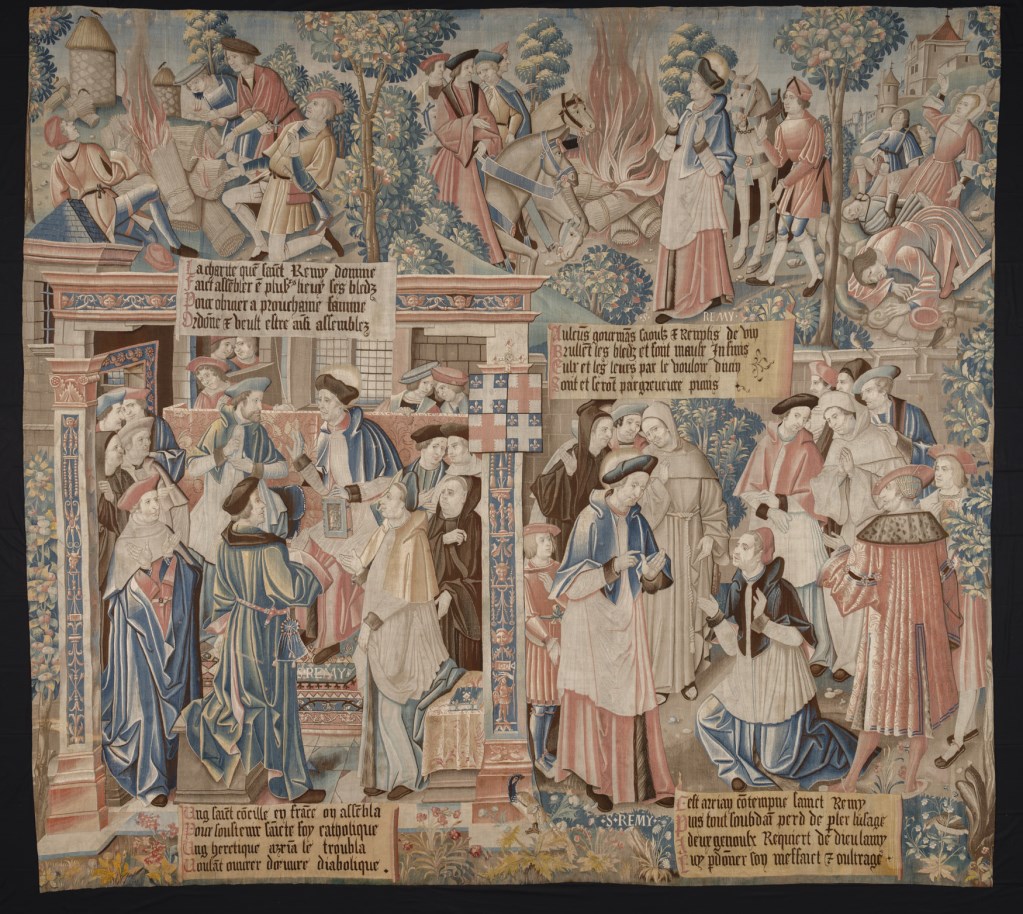 La charite que saīct Remy domine
Faict assēbler ē plusrs lieux ses bledz
Pour obuier a prouchaine famine
Ordōne ⁊ veult estre aīsi assemblez
S. REMY.
Aulcūs gourmās saoulz ⁊ Remplis de vin
Brullēt les bledz et font maulx Infinis
Eulx et les leurs par le vouloir diuin
Sont et serōt par greueure punis
S. REMY
Ung saīct cōcille en frāce on assēbla
Pour soustenir saīcte foy catholique
Ung heretique arriā le troubla
Voulāt ouurer doeuure diabolique .
·S· REMY·
Cest arrian cōtempne sainct Remy
Puis tout soubdaī perd de pler lusage
A deux genoulx Requiert de dieu lamy
Luy pdōner son meffaict ⁊ oultrage .